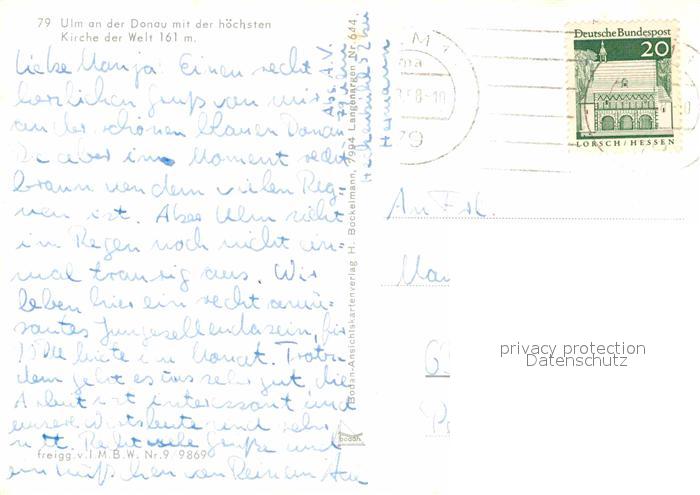 79 Ulm an der Donau mit der höchsten
Kirche der Welt 161 m.
Liebe Manja! Einen recht
herzlichen Gruß von mir
an der schönen blauen Donau
Die aber im Moment recht
braun von dem vielen Reg-
nen ist. Aber Ulm sieht
im Regen noch nicht ein-
mal traurig aus. Wir
leben hier ein recht amü-
santes Junggesellendasein, für
Leute im Monat. Trotz-
dem geht es uns sehr gut, die
Arbeit ist interessant und
unsere Wirtsleute sind sehr
nett. Recht viele Grüße und
ein Küßchen von
freigg.v.I.M.B.W. Nr.9 9869
Abs. A.V.
79 Ulm
Hermann
Bodan-Ansichtskartenverlag H. Bockelmann, 7994 Langenargen Nr. 644
bodan
79
Deutsche Bundespost
20
LORSCH/HESSEN
An Frl.
Man
privacy protection
Datenschutz